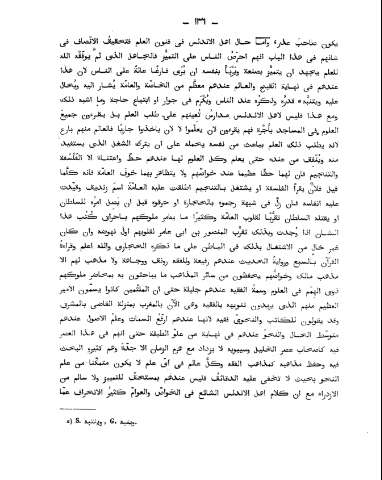 — ١٣٦ —
يكون صاحب عذر، وأما حال اهل الاندلس فى فنون العلم فتحقيق الانصاف فى
شانهم فى هذا الباب انهم احرص الناس على التميز فالجاهل الذى لم يوفقه الله
للعلم يجهد ان يتميز بصنعة ويربأ بنفسه ان يرى فارغا عالة على الناس لان هذا
عندهم فى نهاية القبح والعالم عندهم معظم من الخاصة والعامة يشار اليه ويحال
عليه وينبه قدره وذكره عند الناس ويكرم فى جوار او ابتياع حاجة وما اشبه ذلك
ومع هذا فليس لاهل الاندلس مدارس تعينهم على طلب العلم بل يقرءون جميع
العلوم فى المساجد باجرة فهم يقرءون لان يعلموا لا لان ياخذوا جاريا فالعالم منهم بارع
لانه يطلب ذلك العلم بباعث من نفسه يحمله على ان يترك الشغل الذى يستفيد
منه وينفق من عنده حتى يعلم وكل العلوم لها عندهم حظ واعتناء الا الفلسفة
والتنجيم فان لهما حظا عظيما عند خواصهم ولا يتظاهر بهما خوف العامة فانه كلما
قيل فلان يقرأ الفلسفة او يشتغل بالتنجيم اطلقت عليه العامة اسم زنديق وقيدت
عليه انفاسه فان زل فى شبهة رجموه بالحجارة او حرقوه قبل ان يصل امره للسلطان
او يقتله السلطان تقربا لقلوب العامة وكثيرا ما يامر ملوكهم باحراق كتب هذا
الشان اذا وجدت وبذلك تقرب المنصور بن ابى عامر لقلوبهم اول نهوضه وان كان
غير خال من الاشتغال بذلك فى الباطن على ما ذكره الحجارى والله اعلم وقراءة
القرآن بالسبع ورواية الحديث عندهم رفيعة وللفقه رونق ووجاهة ولا مذهب لهم الا
مذهب مالك وخواصهم يحفظون من سائر المذاهب ما يباحثون به بمحاضر ملوكهم
ذوى الهمم فى العلوم وسمة الفقيه عندهم جليلة حتى ان الملثمين كانوا يسمون الامير
العظيم منهم الذى يريدون تنويهه بالفقيه وهى الآن بالمغرب بمنزلة القاضى بالمشرق
وقد يقولون للكاتب والنحوى فقيه لانها عندهم ارفع السمات وعلم الاصول عندهم
متوسط الحال والنحو عندهم فى نهاية من علو الطبقة حتى انهم فى هذا العصر
فيه كاصحاب عصر الخليل وسيبويه لا يزداد مع هرم الزمان الا جدة وهم كثيرو البحث
فيه وحفظ مذاهبه كمذاهب الفقه وكل عالم فى اى علم لا يكون متمكنا من علم
النحو بحيث لا تخفى عليه الدقائق فليس عندهم بمستحق للتمييز ولا سالم من
الازدراء مع ان كلام اهل الاندلس الشائع فى الخواص والعوام كثير الانحراف عما